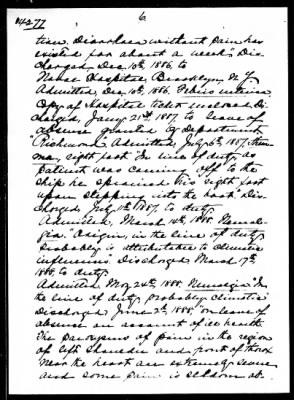 14277
6
tion. Diarrhoea without pain has
existed for about a week". Dis-
charged, Dec. 10th, 1886, to
Naval Hospital, Brooklyn, N.Y.
Admitted, Dec. 10th, 1886. Febris
Copy of Hospital ticket enclosed. Dis-
charged, Jany. 21st, 1887. to leave of
absence granted by Department
Richmond. Admitted, July 6th, 1887.
right foot "In line of duty, as
patient was coming off to the
ship he sprained his right foot
upon stepping into the boat". Dis-
charged, July 1887. to duty.
Admitted, March 14th, 1888. Neural-
gia. "Origin, in the line of duty.
Probably is attributable to climatic
influences". Discharged March 17th
1888. to duty.
Admitted May 24th, 1888. Neuralgia. "In
the line of duty, probably climatic"
Discharged June 2nd, 1888, "on leave of
absence on account of ill health.
The paroxysms of pain in the region
of left shoulder and front of thorax
near the heart are extremely severe
and some pain is seldom ab-